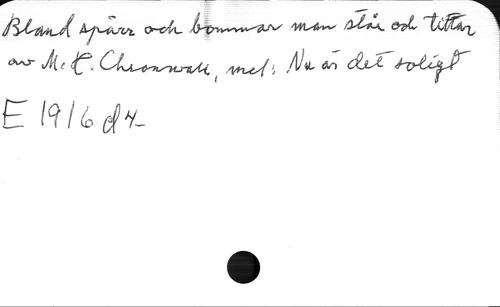 Bland spårr och bommar man står och tittar
av M. H. mel: Nu är det soligt
E 1916 d 4-